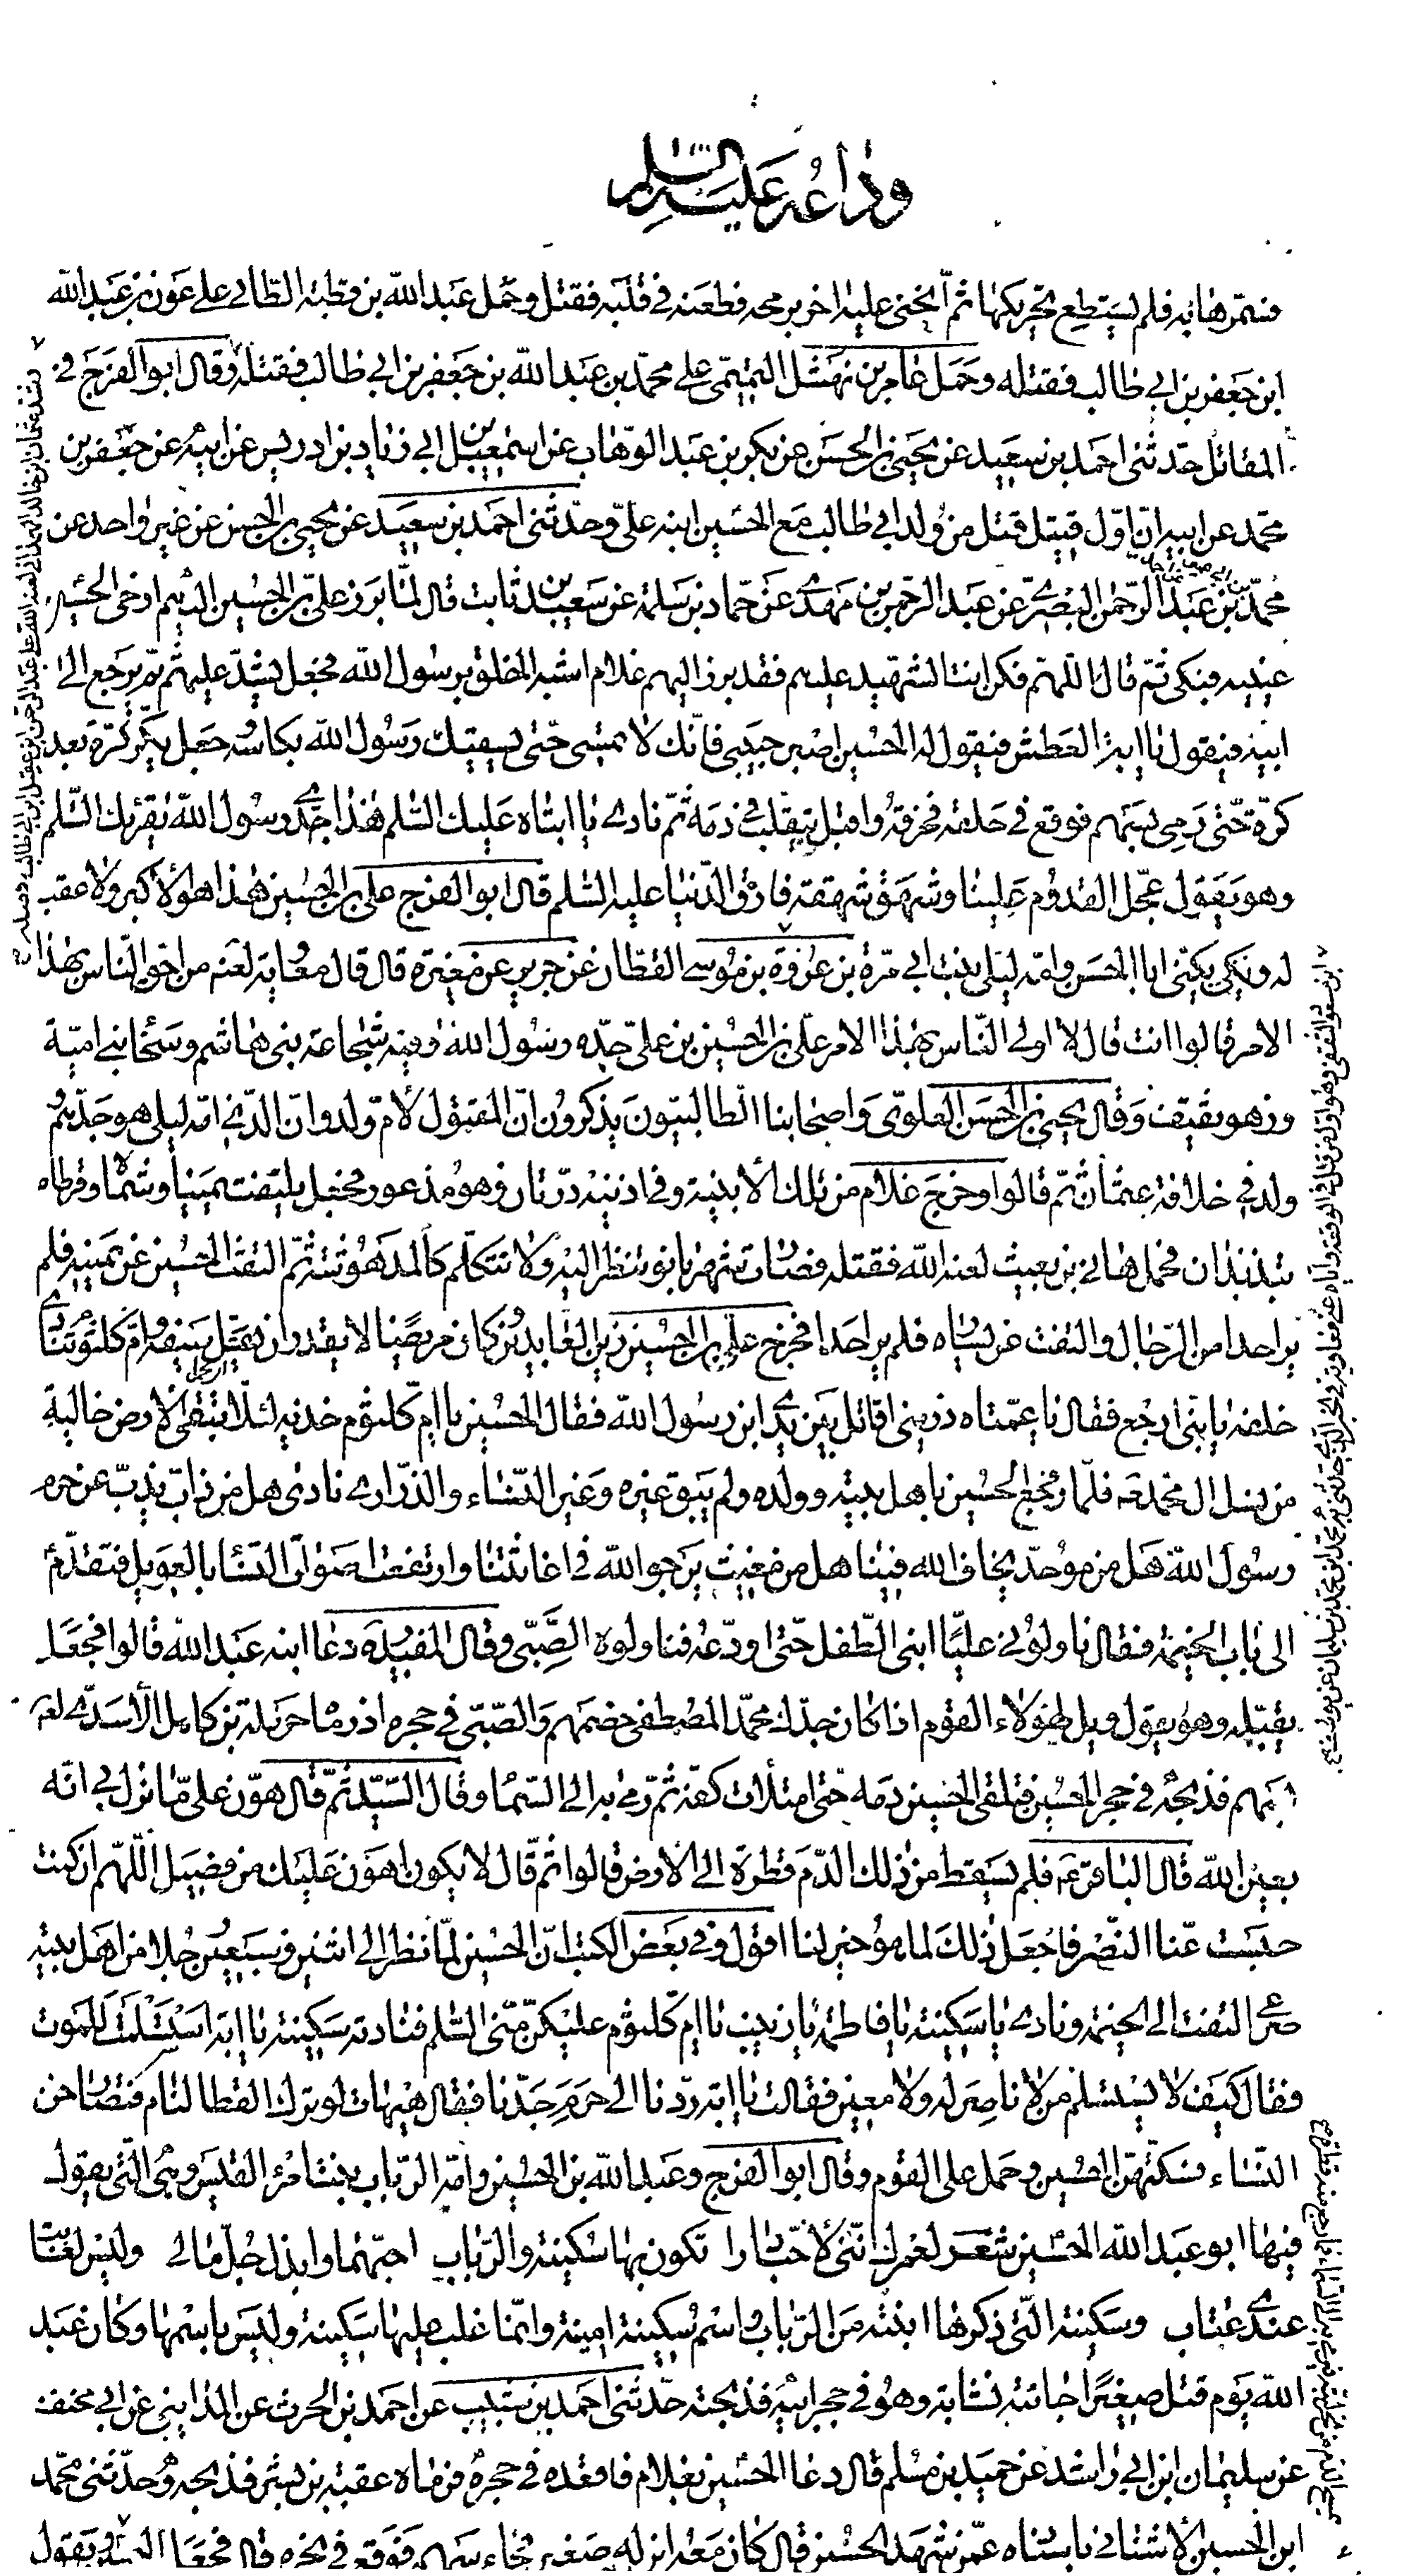 وداعه عليه السلم
فسمرها به فلم يستطع تحريكها ثم انحنى عليه اخر برمحه فطعنه في قلبه فقتل وحمل عبد الله بن قطبة الطائي على عون بن عبد الله
ابن جعفر بن ابي طالب فقتله وحمل عامر بن نهشل التميمي على محمد بن عبد الله بن جعفر بن ابي طالب فقتله وقال ابو الفرج في
المقاتل حدثني احمد بن سعيد عن يحيى بن الحسن عن بكر بن عبد الوهاب عن اسمعيل بن ابي زياد بن ادريس عن ابيه عن جعفر بن
محمد عن ابيه ان اول قتيل قتل من ولد ابي طالب مع الحسين ابنه علي وحدثني احمد بن سعيد عن يحيى بن الحسن عن غير واحد عن
محمد بن عبد الرحمن البصري عن عبد الرحمن بن مهدي عن حماد بن سلمة عن سعيد بن ثابت قال لما برز علي بن الحسين اليهم ارخى الحسين
عينيه فبكى ثم قال اللهم فكن انت الشهيد عليهم فقد برز اليهم غلام اشبه الخلق برسول الله فجعل يشد عليهم ثم يرجع الى
ابيه فيقول يا ابه العطش فيقول له الحسين اصبر حبيبي فانك لا تمسي حتى يسقيك رسول الله بكاسه جعل يكر كرة بعد
كرة حتى رمي بسهم فوقع في حلقه فخرقه واقبل يتقلب في دمه ثم نادى يا ابتاه عليك السلم هذا جدي رسول الله يقرئك السلم
وهو يقول عجل القدوم علينا وشهق شهقة فارق الدنيا عليه السلم قال ابو الفرج علي بن الحسين هذا هو الاكبر ولا عقب
له ويكنى ابا الحسن وامه ليلى بنت ابي مرة بن عروة بن موسى القطان عن جرير عن مغيرة قال قال معاوية لعنه من احق الناس بهذا
الامر قالوا انت قال لا اولى الناس بهذا الامر علي بن الحسين بن علي جده رسول الله وفيه شجاعة بني هاشم وسخا بني امية
وزهو ثقيف وقال يحيى بن الحسن العلوي واصحابنا الطالبيون يذكرون ان المقتول لام ولد وان الذي امه ليلى هو جدهم
ولد في خلافة عثمان ثم قالوا وخرج غلام من تلك الابنية وفي اذنيه درتان وهو مذعور فجعل يلتفت يمينا وشمالا وقرطاه
يتذبذبان فحمل هاني بن بعيث لعنه الله فقتله فصارت شهربانو تنظر اليه ولا تتكلم كالمدهوشة ثم التفت الحسين عن يمينه فلم
ير احدا من الرجال والتفت عن يساره فلم ير احدا فخرج علي بن الحسين زين العابدين كان مريضا لا يقدر ان يقل سيفه وام كلثوم تنادي
خلفه يا بني ارجع فقال يا عمتاه ذريني اقاتل بين يدي ابن رسول الله فقال الحسين يا ام كلثوم خذيه لئلا تبقى الارض خالية
من نسل ال محمد فلما فجع الحسين باهل بيته وولده ولم يبق غيره وغير النساء والذراري نادى هل من ذاب يذب عن حرم
رسول الله هل من موحد يخاف الله فينا هل من مغيث يرجو الله في اغاثتنا وارتفعت اصوات النساء بالعويل فتقدم
الى باب الخيمة فقال ناولوني عليا ابني الطفل حتى اودعه فناولوه الصبي وقال المفيد ره دعا ابنه عبد الله قالوا فجعل
يقبله وهو يقول ويل لهؤلاء القوم اذا كان جدك محمد المصطفى خصمهم والصبي في حجره اذ رماه حرملة بن كاهل الاسدي لعنه
بسهم فذبحه في حجر الحسين فتلقى الحسين دمه حتى امتلات كفه ثم رمى به الى السماء وقال السيد ثم قال هون علي ما نزل بي انه
بعين الله قال الباقر فلم يسقط من ذلك الدم قطرة الى الارض قالوا ثم قال لا يكون اهون عليك من فصيل اللهم ان كنت
حبست عنا النصر فاجعل ذلك لما هو خير لنا اقول وفي بعض الكتب ان الحسين لما نظر الى اثنين وسبعين رجلا من اهل بيته
صرعى التفت الى الخيمة ونادى يا سكينة يا فاطمة يا زينب يا ام كلثوم عليكن مني السلم فنادته سكينة يا ابه استسلمت للموت
فقال كيف لا يستسلم من لا ناصر له ولا معين فقالت يا ابه ردنا الى حرم جدنا فقال هيهات لو ترك القطا لنام فتصارخن
النساء فسكتهن الحسين وحمل على القوم وقال ابو الفرج وعبد الله بن الحسين وامه الرباب بنت امرئ القيس وهي التي يقول
فيها ابو عبد الله الحسين شعر لعمرك انني لاحب دارا تكون بها سكينة والرباب احبهما وابذل جل مالي وليس لعاتب
عندي عتاب وسكينة التي ذكرها ابنته من الرباب واسم سكينة امينة وانما غلب عليها سكينة وليس باسمها وكان عبد
الله يوم قتل صغيرا جائته نشابة وهو في حجر ابيه فذبحته حدثني احمد بن شبيب عن احمد بن الحرث عن المدايني عن ابي مخنف
عن سليمان ابن ابي راشد عن حميد بن مسلم قال دعا الحسين بغلام فاقعده في حجره فرماه عقبة بن بشر فذبحه وحدثني محمد
ابن الحسين الاشناني باسناده عمن شهد الحسين قال كان معه ابن له صغير فجاء سهم فوقع في نحره قال فجعل الحسين يقول